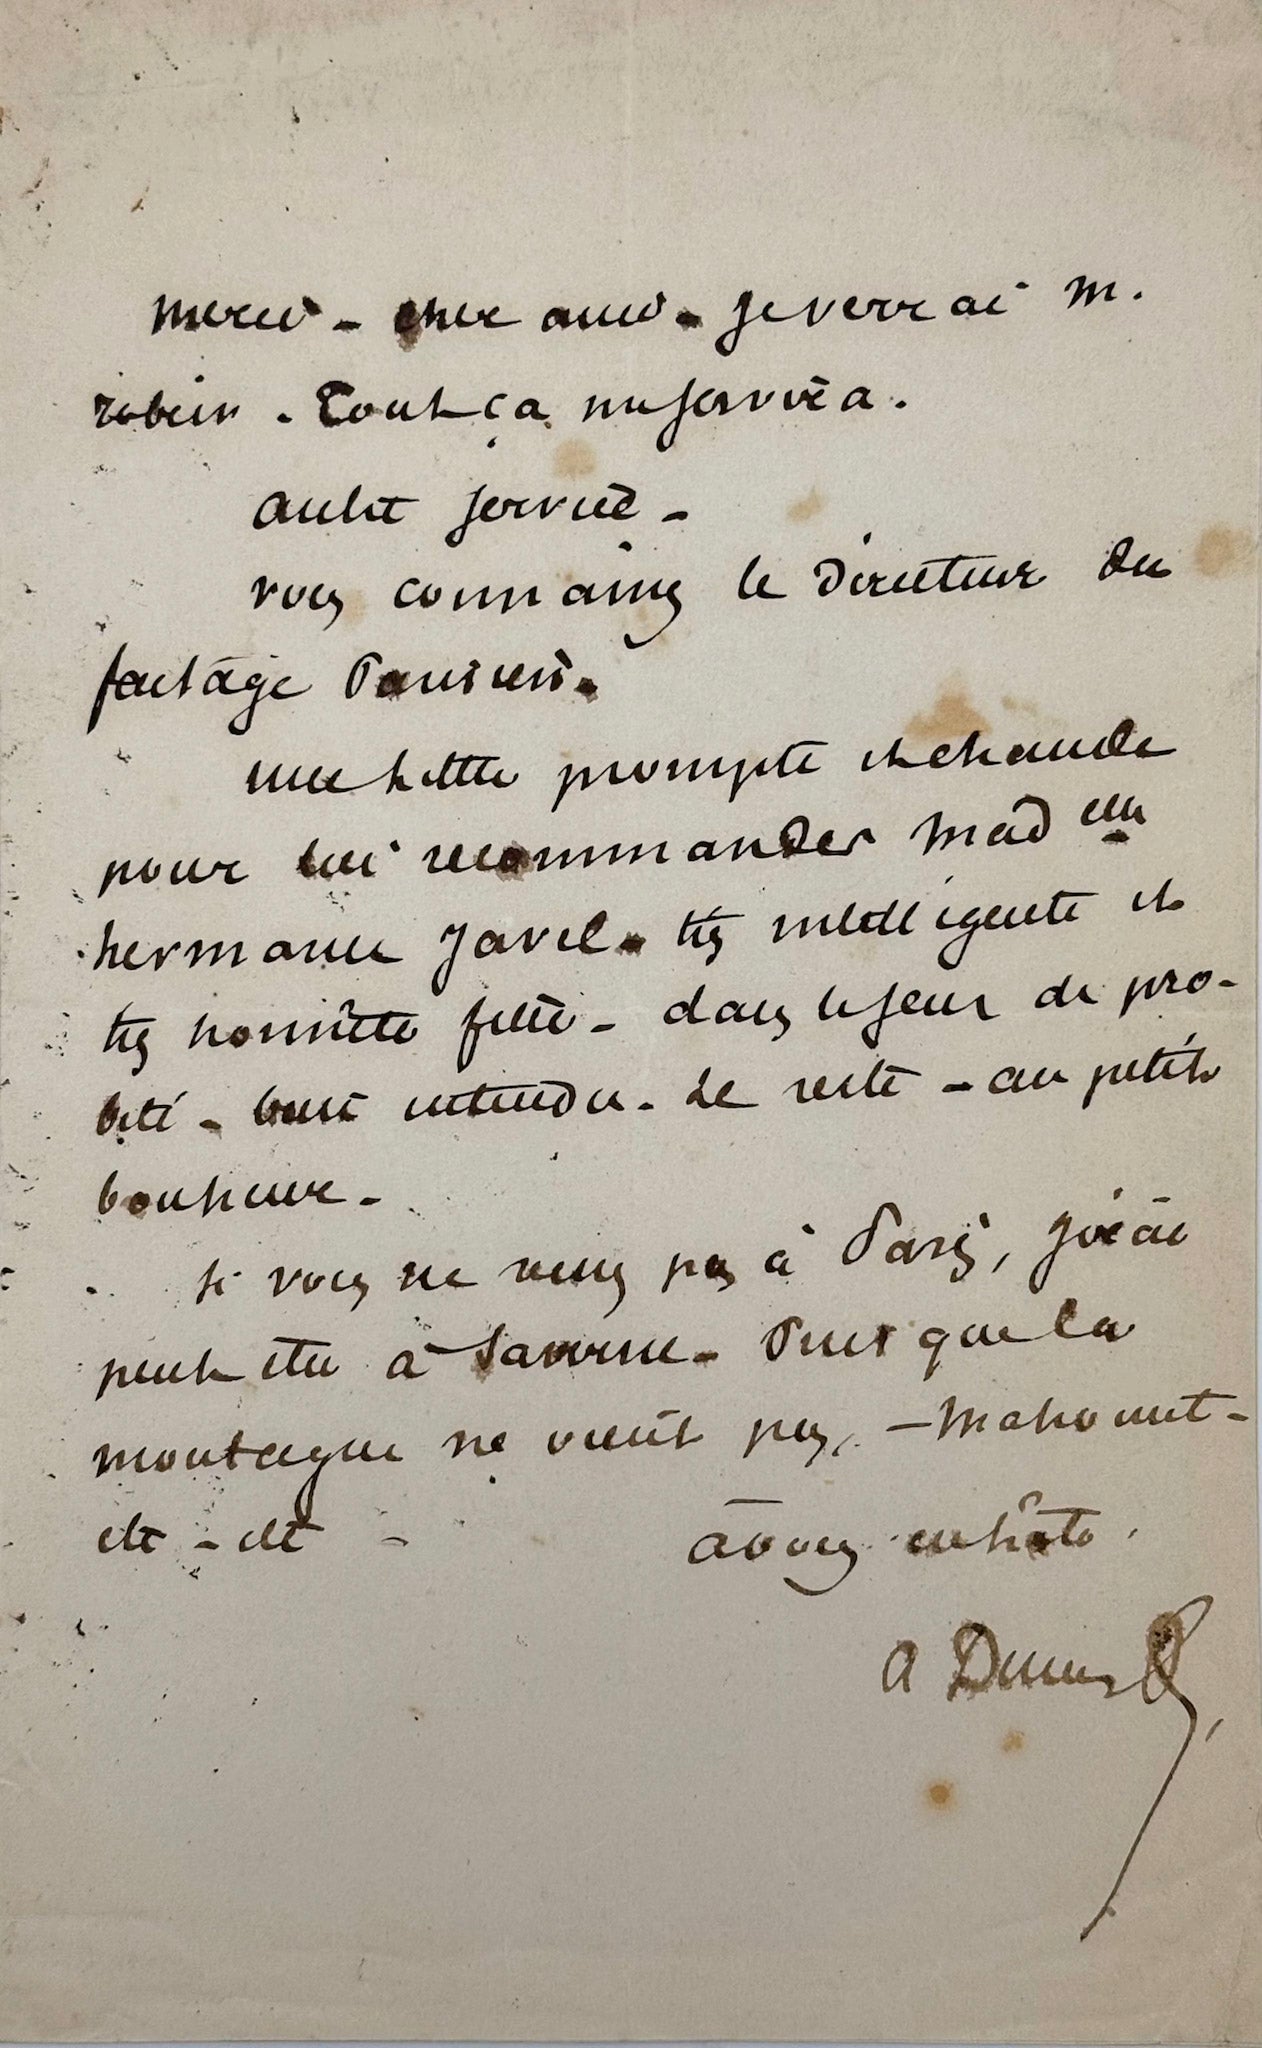 Merci - cher ami - Je verrai M.
robin - Tout ça me servira.
autre service -
vous connaissez le Directeur du
factage Parisien -
une lettre prompte et chaude
pour lui recommander Mad elle
hermance Javel - très intelligente et
très honnête fille - dans le sens de pro-
bité - bien entendu - Le reste - au petit
bonheur -
Si vous ne venez pas à Paris, J'irai
peut être à Saverne - Puis que la
montagne ne vient pas, - Mahomet -
etc - etc -
à vous en hâte.
A Dumas